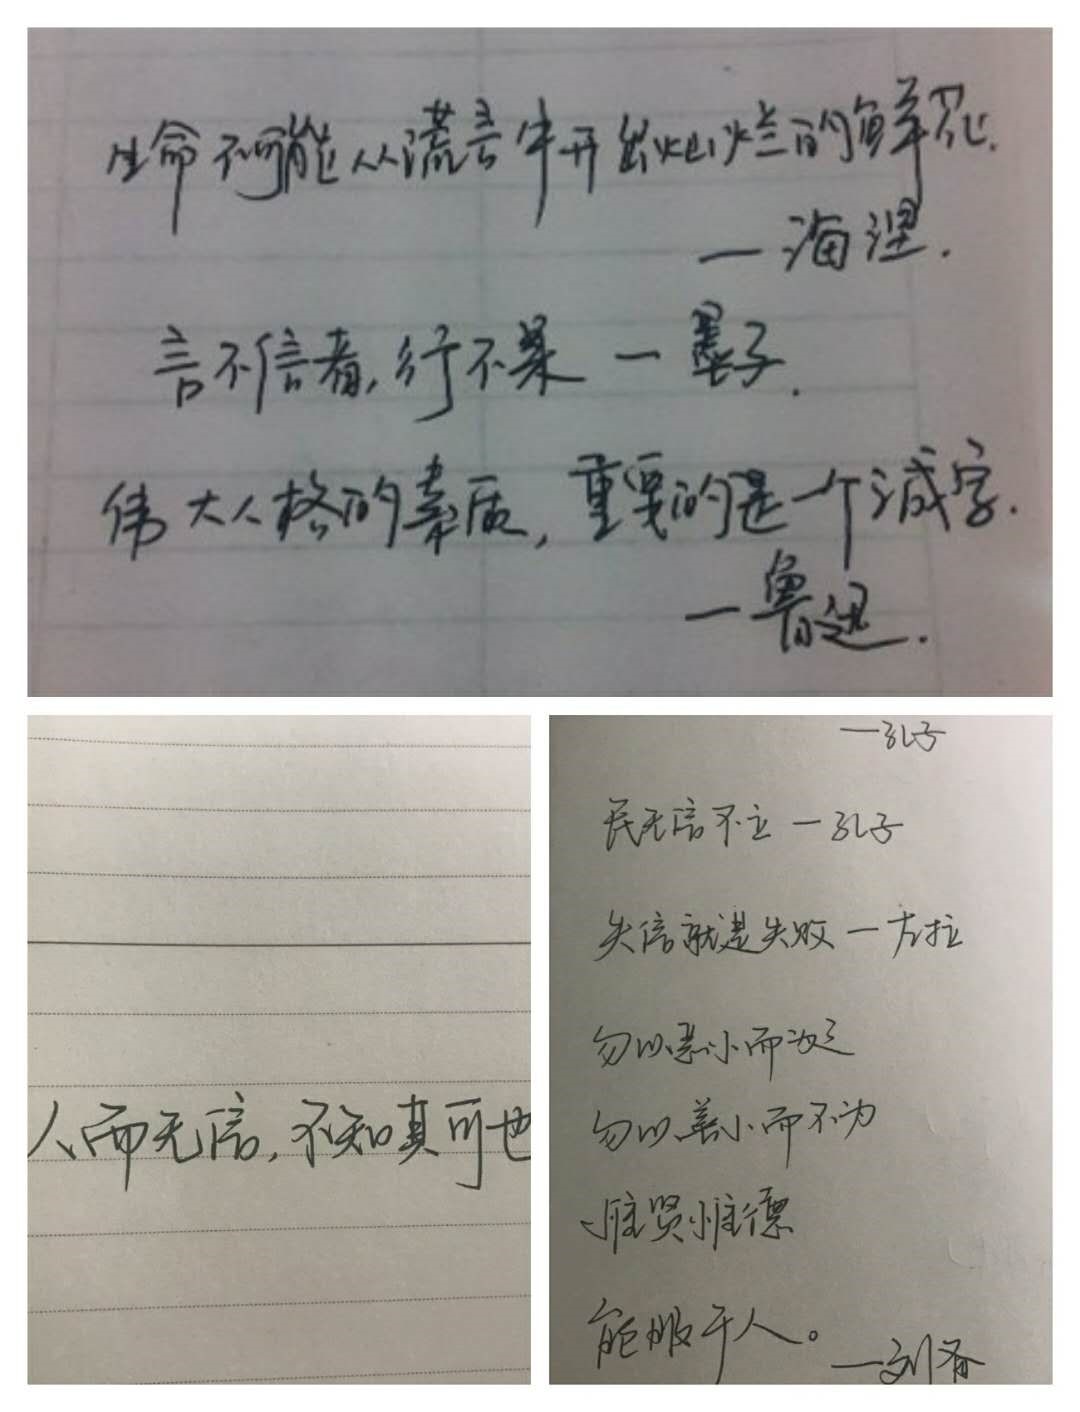 生命不可能从谎言中开出灿烂的鲜花.
一海涅.
言不信者,行不果 一 墨子.
伟大人格的素质,重要的是一个诚字.
一鲁迅.
人而无信,不知其可也
一孔子
民无信不立 一 孔子
失信就是失败 一 左拉
勿以恶小而为之
勿以善小而不为
惟贤惟德
能服于人。
一刘备